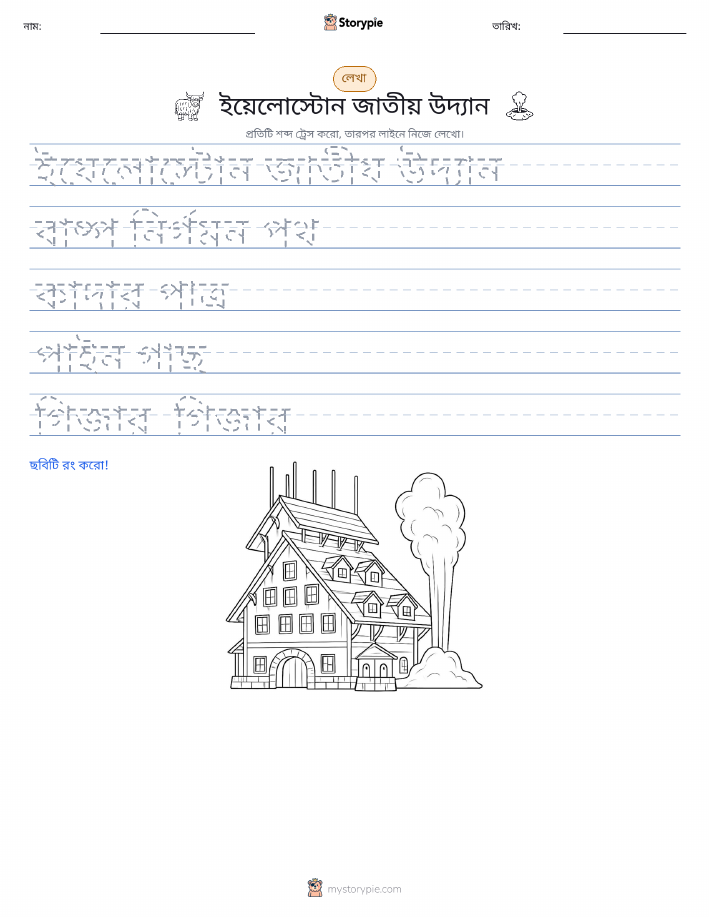 নাম:
Storypie
তারিখ:
লেখা
ইয়েলোস্টোন জাতীয় উদ্যান
প্রতিটি শব্দ ট্রেস করো, তারপর লাইনে নিজে লেখো।
ইয়েলোস্টোন জাতীয় উদ্যান
বাষ্প নির্গমন পথ
কাদার পাত্র
পাইন গাছ
গিজার গিজার
ছবিটি রং করো!
mystorypie.com